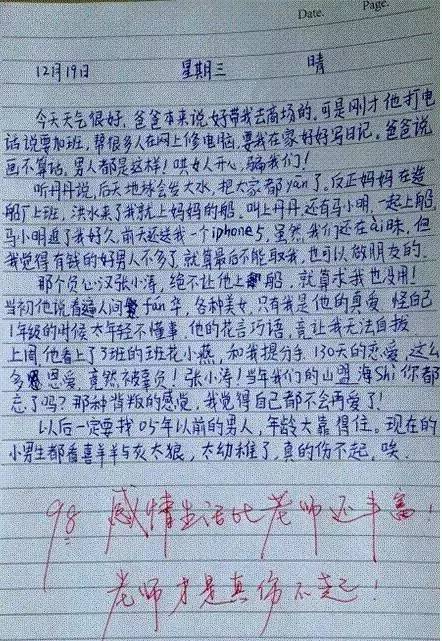 Date. Page.
12月19日 星期三 晴
今天天气很好,爸爸本来说好带我去商场的,可是刚才他打电
话说要加班,帮很多人在网上修电脑,要我在家好好写日记。爸爸说
画不算话,男人都是这样!哄女人开心,骗我们!
听丹丹说,后天地球会发大水,把大家都yān了。反正妈妈在造
船厂上班,洪水来了我就上妈妈的船。叫上丹丹,还有马小明,一起上船,
马小明追了我好久,前天还送我一个iphone5,虽然我们还在ài昧,但
我觉得有钱的好男人不多了,就算最后不能取我,也可以做朋友的。
那个负心汉张小涛,绝不让他上船,就算求我也没用!
当初他说看遍人间fán华,各种美女,只有我是他的真爱,怪自己
1年级的时候太年轻不懂事,他的花言巧语,竟让我无法自拔
上周他看上了3班的班花小燕,和我提分手,130天的恋爱,这么
多恩爱,竟然被辜负!张小涛!当年我们的山盟海Shì你都
忘了吗?那种背叛的感觉,我觉得自己都不会再爱了!
以后一定要找05年以前的男人,年龄大靠得住。现在的
小男生都看喜羊羊与灰太狼,太幼稚了,真的伤不起,唉.
98 感情生活比老师还丰富!
老师才是真伤不起!